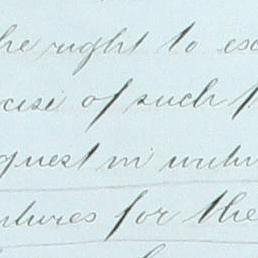 the right to ex
cise of such
quest in writin
ntures for the